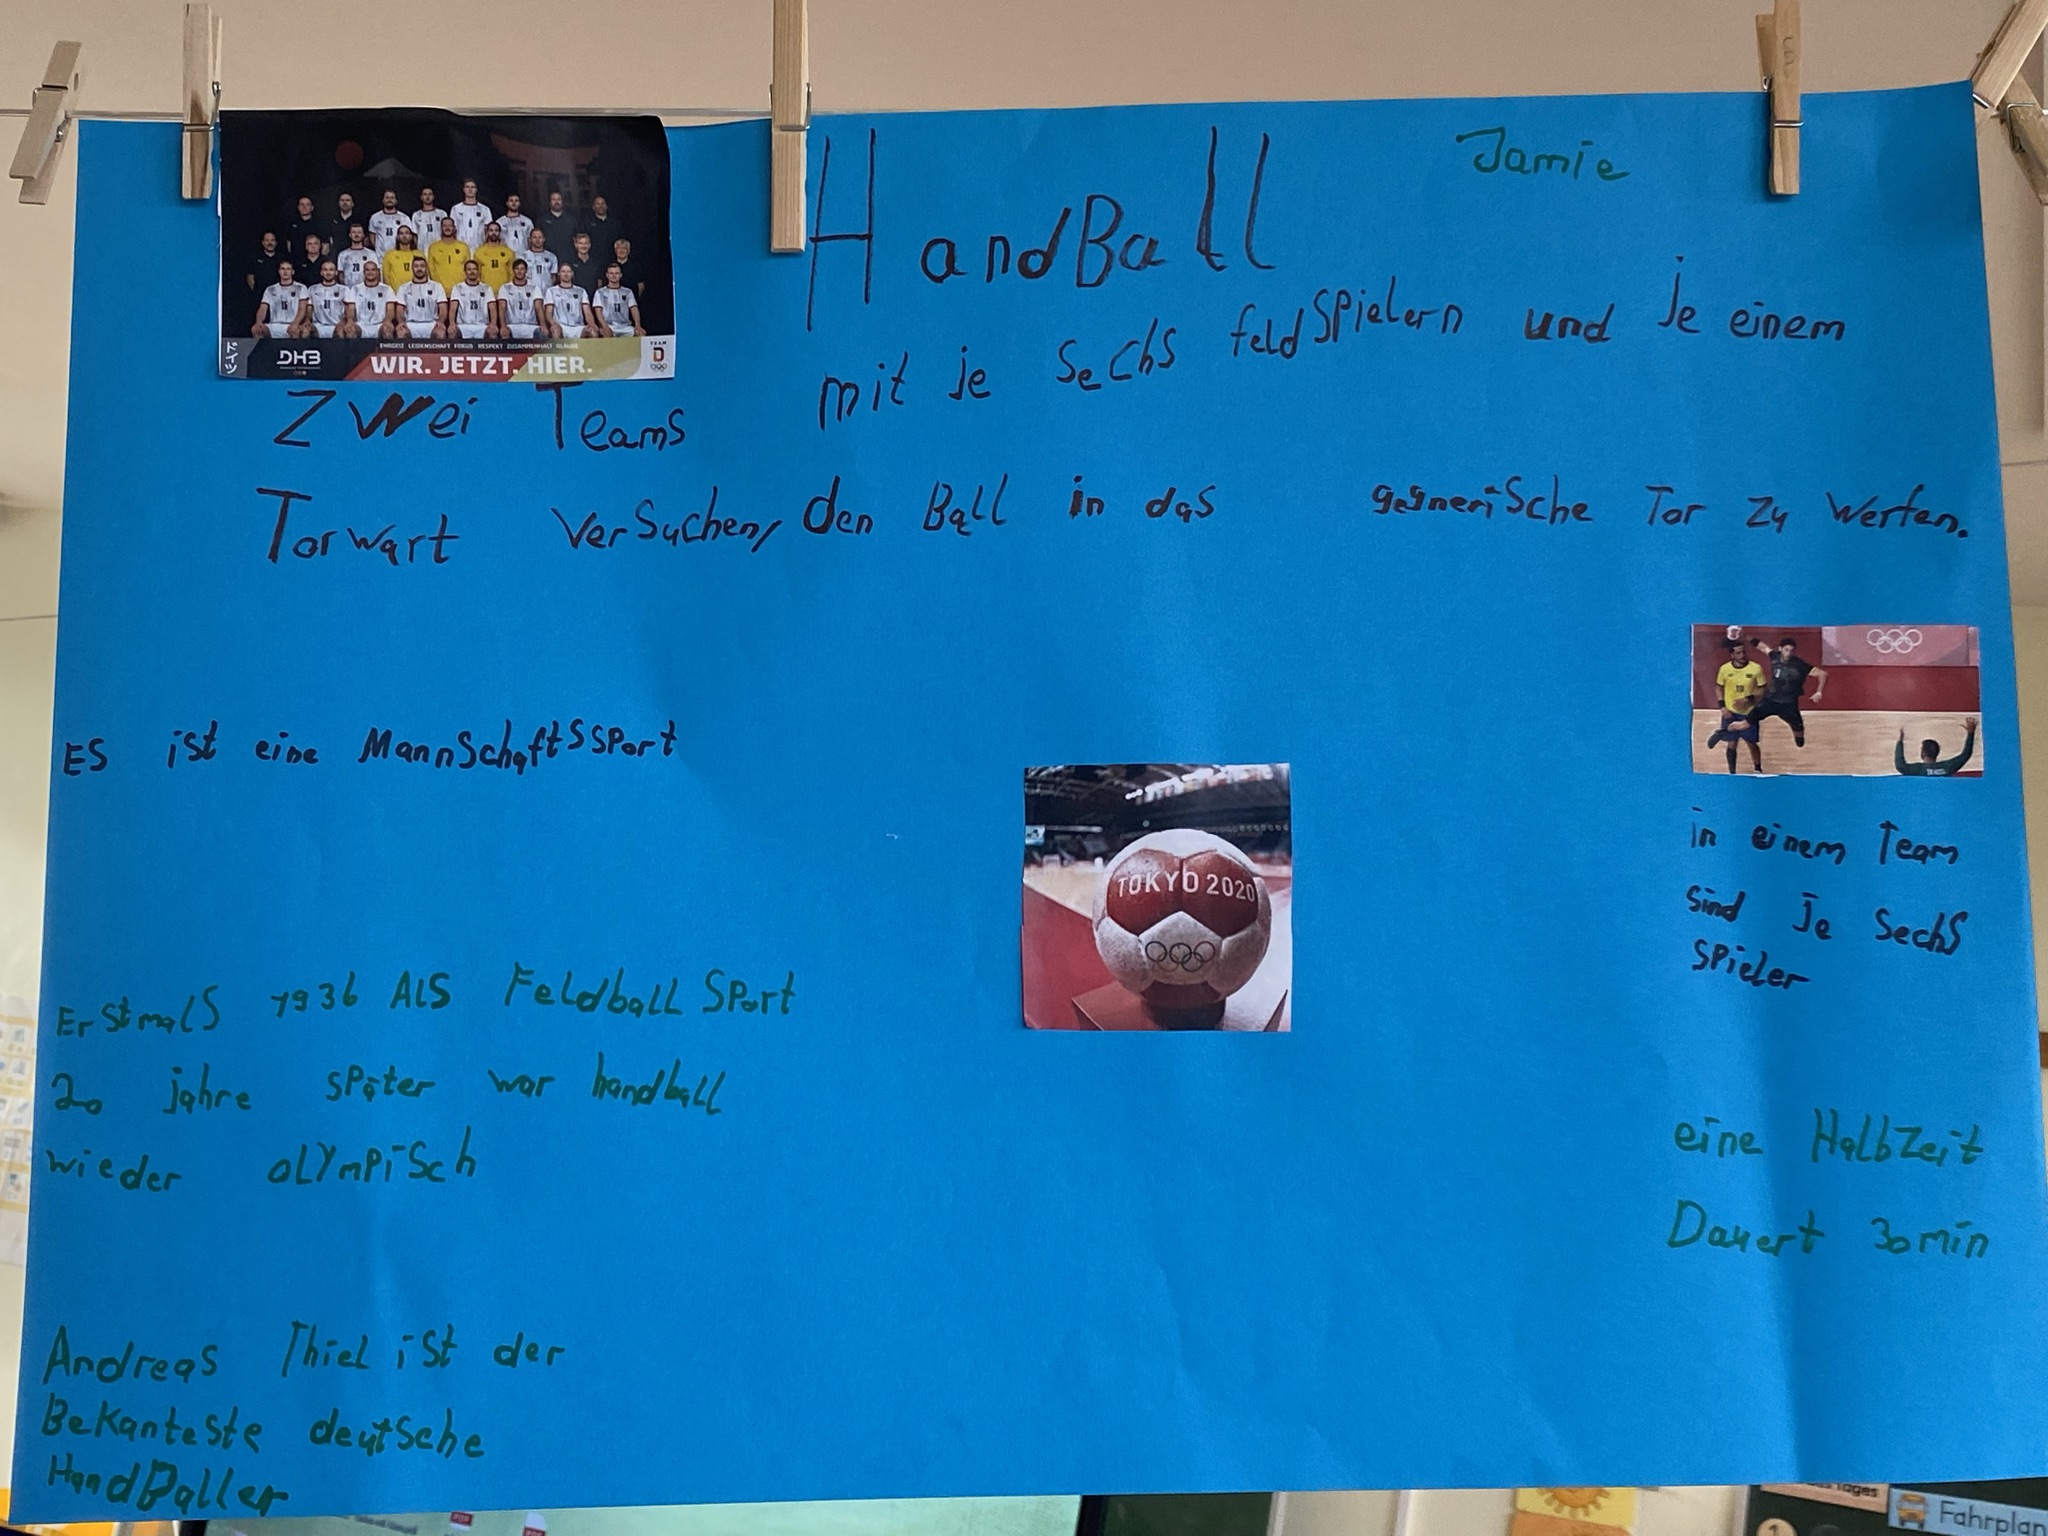 HandBall
Jamie
EHRGEIZ LEIDENSCHAFT FOKUS RESPEKT ZUSAMMENHALT GLAUBE
ドイツ
DHB
WIR. JETZT. HIER.
TEAM
D
Zwei Teams mit je sechs feldspielern und je einem
Torwart versuchen, den Ball in das gegnerische Tor zu werfen.
ES ist eine Mannschaftssport
TOKYO 2020
in einem Team
sind je sechs
spieler
Erstmals 1936 Als Feldball Sport
20 jahre später war handball
wieder olympisch
eine Halbzeit
Dauert 30min
Andreas Thiel ist der
Bekanteste deutsche
HandBaller
Fahrplan